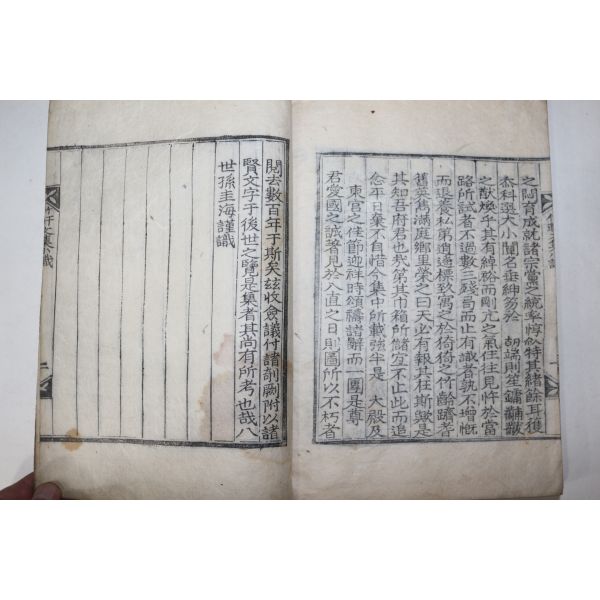 之陶育成就諸宗黨之統率惇似特其緒餘耳後
忝科選大小闈名垂紳笏於 胡端則笙鏞黼黻
之猷煥乎其有綽裕而剛亢之氣住往見忤於當
路所試者不過數三殘局而止有識者孰不增慨
而退養私第逍遙標致寓之於猗猗之竹齡躋者
舊宴舊滿庭鄉里榮之曰天必有報其在斯歟是
其知吾府君也哉第其巾箱所儲宜不止此而追
念平日棄不自惜今集中所載強半是 大殿及
東宮之佳節迎祥時頌禱諸辭而一團是尊
君愛國之誠著見於八直之日則圖所以不朽者
閱去數百年于斯矣玆收僉議付諸剞劂附以諸
賢文字于後世之覽是集者其尚有所考也哉八
世孫圭海謹識